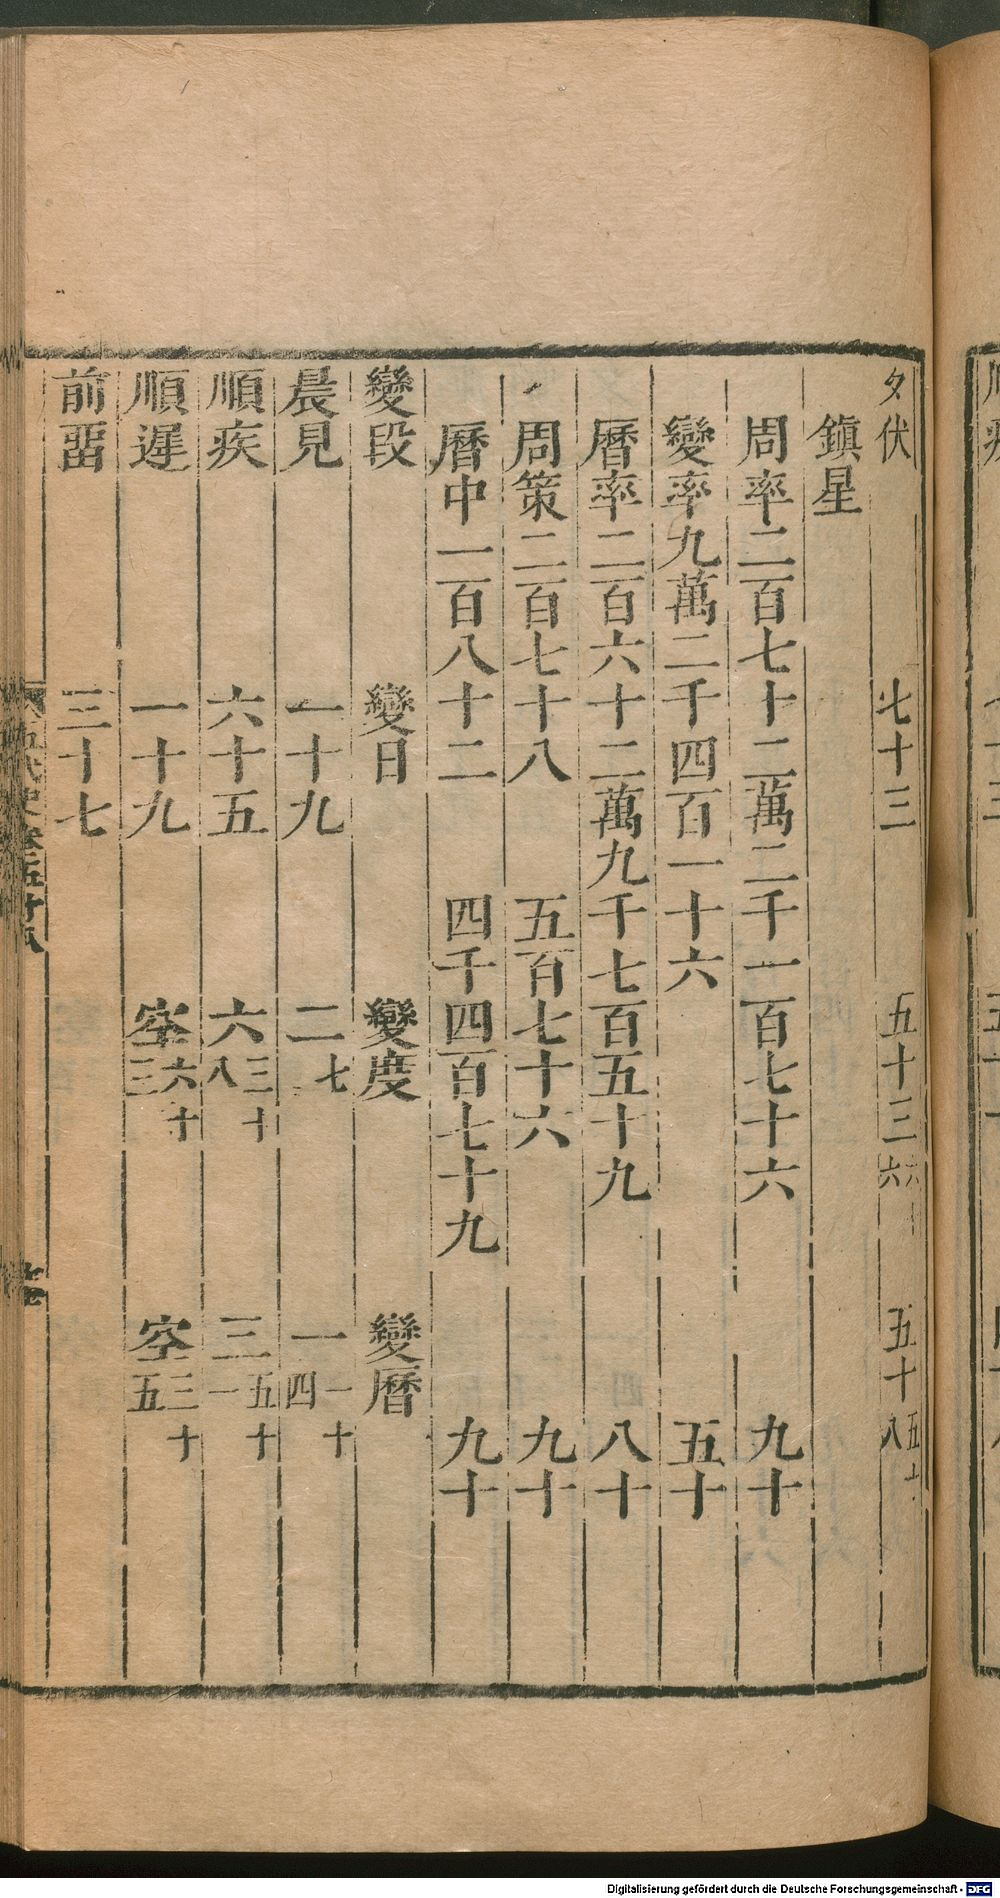 夕伏 七十三 五十三六六 五十五十八
鎮星
周率二百七十二萬二千一百七十六 九十
變率九萬二千四百一十六 五十
曆率二百六十二萬九千七百五十九 八十
周策二百七十八 五百七十六 九十
曆中一百八十二 四千四百七十九 九十
變段 變日 變度 變曆
晨見 一十九 二七 一一十四
順疾 六十五 六三十八 三五十一
順遲 一十九 空六十三 空三十五
前畱 三十七
五代史卷五十八
Digitalisierung gefördert durch die Deutsche Forschungsgemeinschaft - DFG